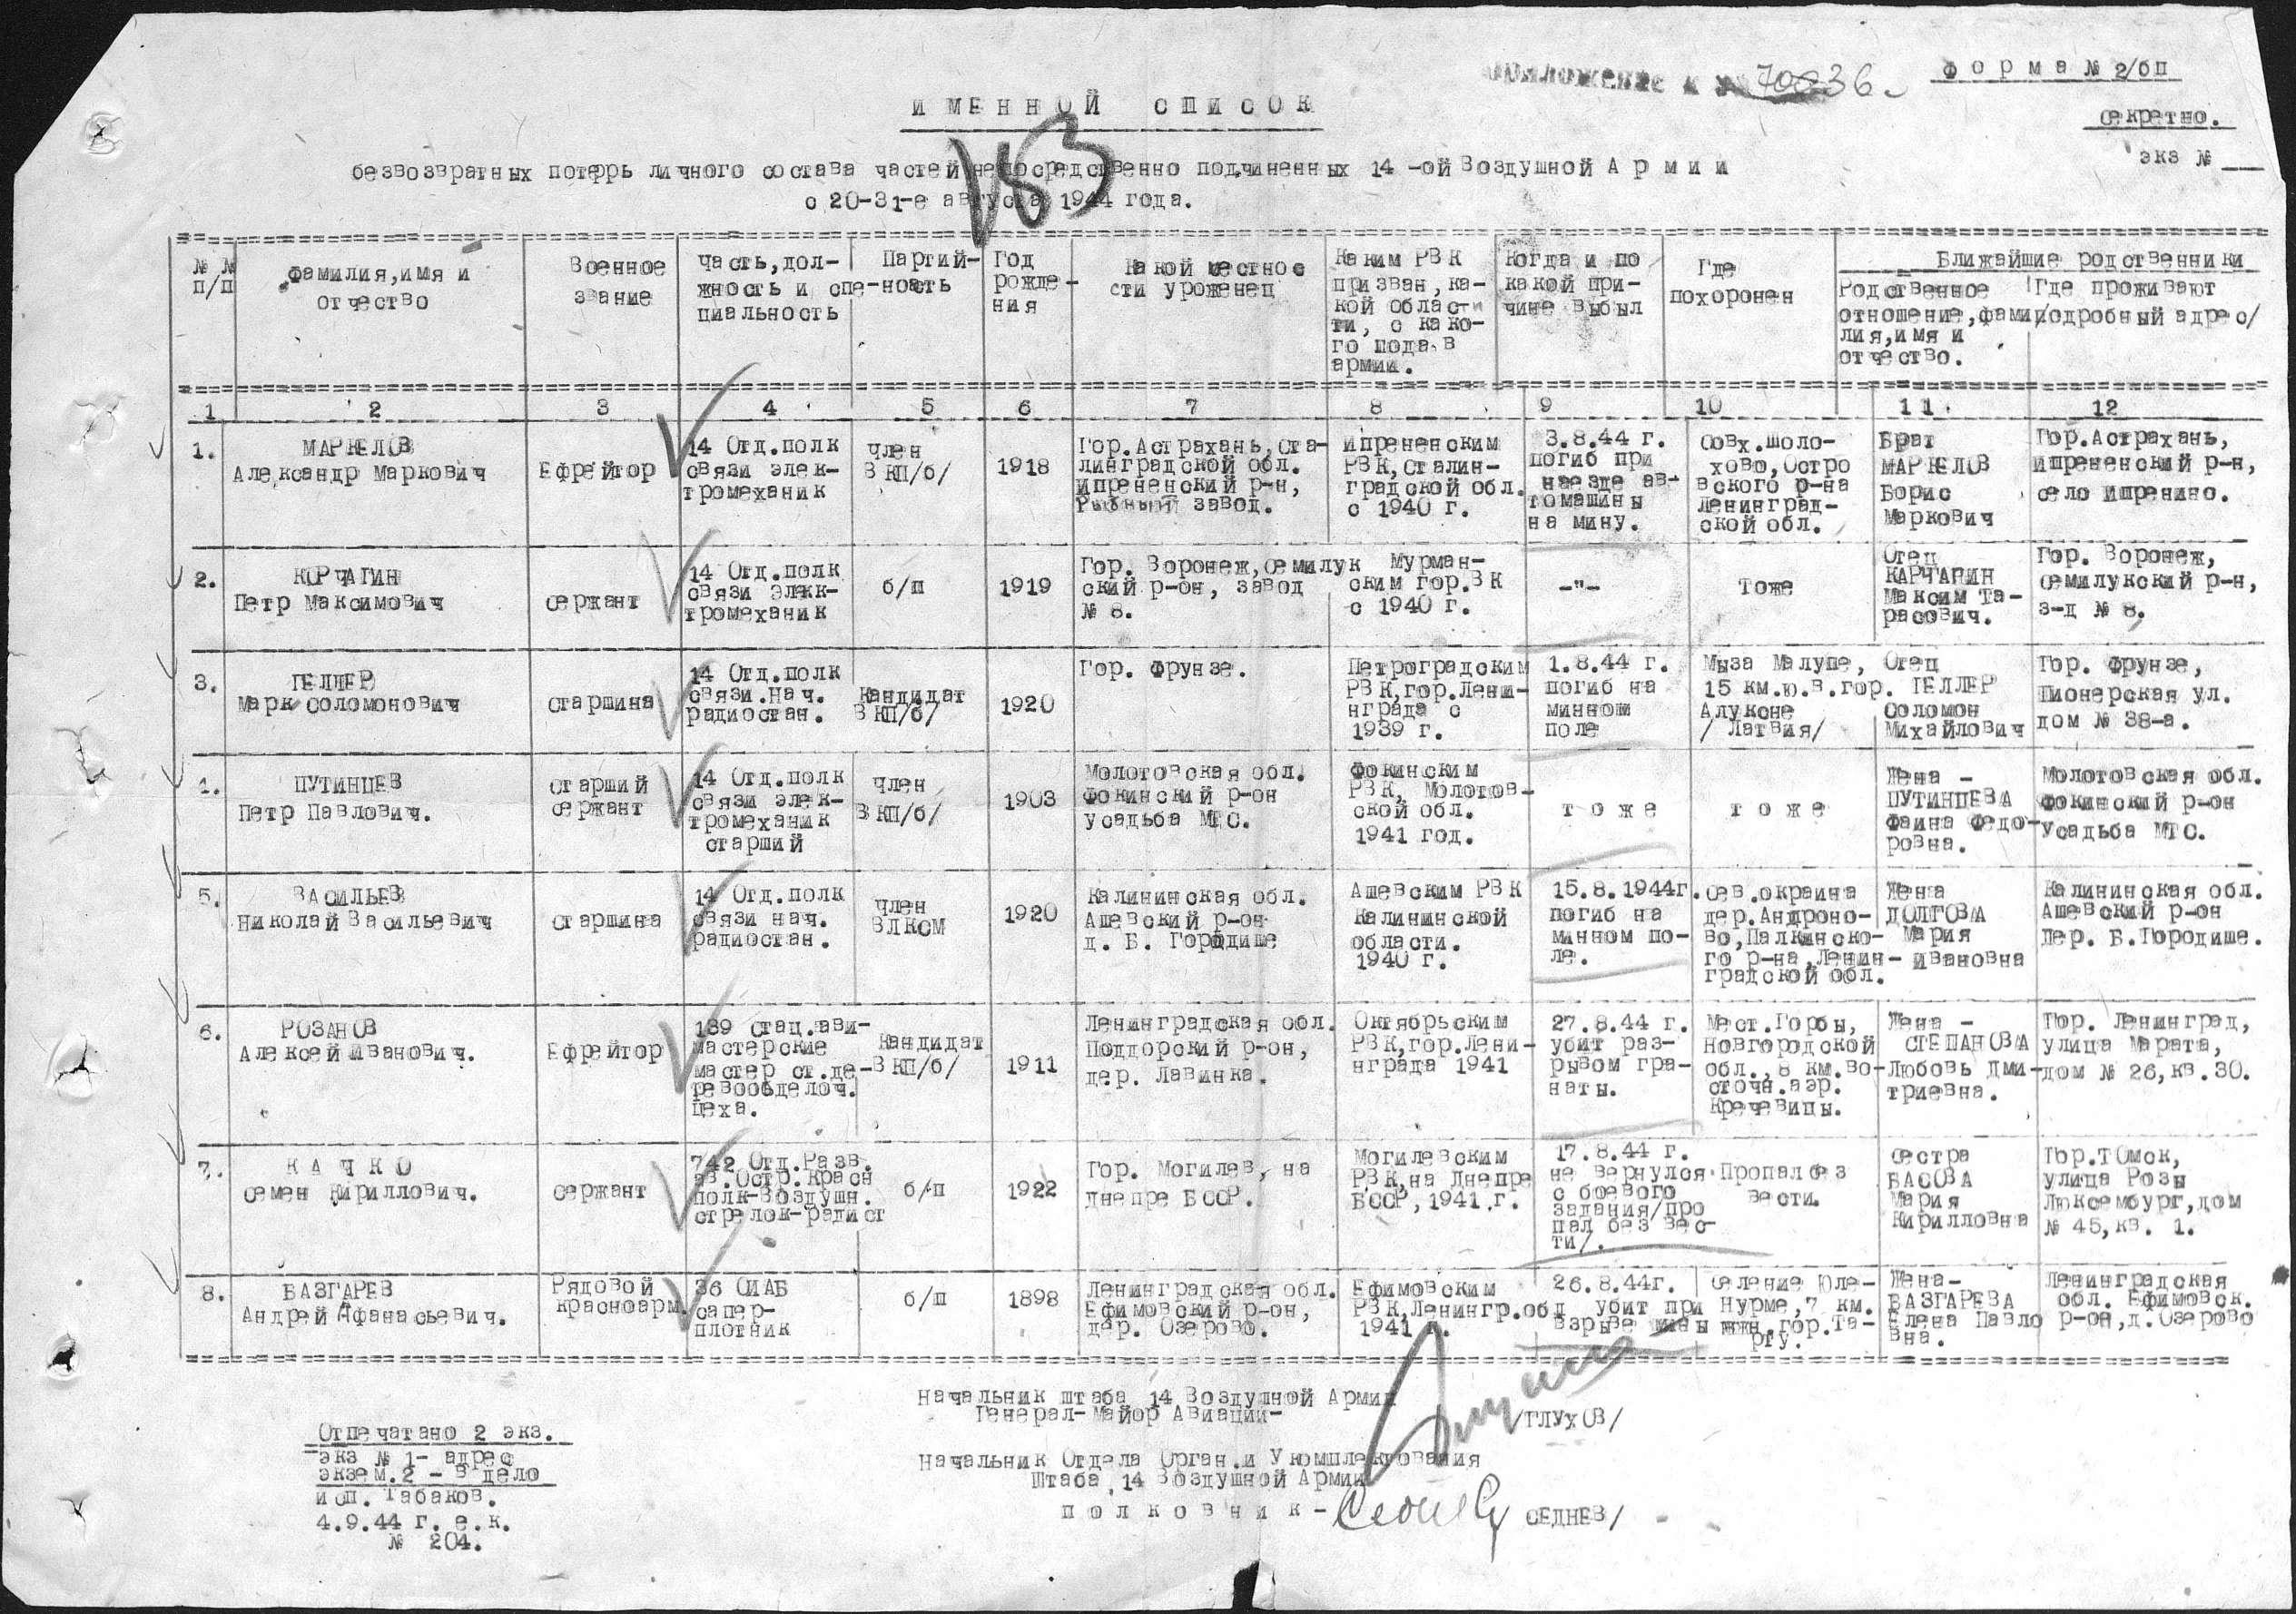 Приложение к № 70036
Форма № 2/бп
Секретно.
экз № __
ИМЕННОЙ СПИСОК
безвозвратных потерь личного состава частей непосредственно подчиненных 14-ой Воздушной Армии
с 20-31-е августа 1944 года.
№ № п/п
фамилия, имя и отчество
Военное звание
Часть, должность и специальность
Партийность
Год рождения
Какой местности уроженец
Каким РВК призван, какой области, с какого года в армии.
Когда и по какой причине выбыл
Где похоронен
Ближайшие родственники
Родственное отношение, фамилия, имя и отчество.
Где проживают /подробный адрес/
1 2 3 4 5 6 7 8 9 10 11 12
1.
МАРКЕЛОВ
Александр Маркович
Ефрейтор
14 Отд.полк
связи элек-
тромеханик
Член
ВКП/б/
1918
Гор.Астрахань, Ста-
линградской обл.
Ипрененский р-н,
Рыбный завод.
Ипрененским
РВК, Сталин-
градской обл.
с 1940 г.
3.8.44 г.
погиб при
наезде ав-
томашины
на мину.
Совх.Шоло-
хово, Остро
вского р-на
Ленинград-
ской обл.
Брат
МАРКЕЛОВ
Борис
Маркович
Гор.Астрахань,
Ипрененский р-н,
село Ипренино.
2.
КОРЧАГИН
Петр Максимович
сержант
14 Отд.полк
связи элек-
тромеханик
б/п
1919
Гор. Воронеж, Семилук
ский р-он, завод
№ 8.
Мурман-
ским гор.ВК
с 1940 г.
-"-
Тоже
Отец
КАРЧАГИН
Максим Та-
расович.
Гор. Воронеж,
Семилукский р-н,
з-д № 8.
3.
ГЕЛЛЕР
Марк Соломонович
Старшина
14 Отд.полк
связи.Нач.
радиостан.
Кандидат
ВКП/б/
1920
Гор. Фрунзе.
Петроградским
РВК, гор.Лени-
нграда с
1939 г.
1.8.44 г.
погиб на
минном
поле
Мыза Малупе,
15 км.ю.в.гор.
Алуксне
/Латвия/
Отец
ГЕЛЛЕР
Соломон
Михайлович
Гор. Фрунзе,
Пионерская ул.
дом № 38-а.
4.
ПУТИНЦЕВ
Петр Павлович.
старший
сержант
14 Отд.полк
связи элек-
тромеханик
старший
Член
ВКП/б/
1903
Молотовская обл.
Фокинский р-он
усадьба МТС.
Фокинским
РВК, Молотов-
ской обл.
1941 год.
тоже
тоже
Жена -
ПУТИНЦЕВА
Фаина Федо-
ровна.
Молотовская обл.
Фокинский р-он
Усадьба МТС.
5.
ВАСИЛЬЕВ
Николай Васильевич
старшина
14 Отд.полк
связи нач.
радиостан.
Член
ВЛКСМ
1920
Калининская обл.
Ашевский р-он
д. Б. Городище
Ашевским РВК
Калининской
области.
1940 г.
15.8.1944г.
погиб на
минном по-
ле.
Сев.окраина
дер.Андроно-
во, Палкинско-
го р-на, Ленин-
градской обл.
Жена
ДОЛГОВА
Мария
Ивановна
Калининская обл.
Ашевский р-он
Дер. Б.Городище.
6.
РОЗАНОВ
Алексей Иванович.
Ефрейтор
189 стац.ави-
мастерские
мастер ст.де-
ревообделоч.
цеха.
Кандидат
ВКП/б/
1911
Ленинградская обл.
Поддорский р-он,
дер. Лавинка.
Октябрьским
РВК, гор.Лени-
нграда 1941
27.8.44 г.
убит раз-
рывом гра-
наты.
Мест.Горбы,
Новгородской
обл., 8 км.во-
сточн.аэр.
Кречевицы.
Жена -
СТЕПАНОВА
Любовь Дми-
триевна.
Гор. Ленинград,
улица Марата,
дом № 26, кв.30.
7.
КАЧКО
Семен Кириллович.
сержант
742 Отд.Разв.
ав.Остр.Красн
полк-Воздушн.
стрелок-радист
б/п
1922
Гор. Могилев, на
Днепре БССР.
Могилевским
РВК, на Днепре
БССР, 1941 г.
17.8.44 г.
не вернулся
с боевого
задания/про
пал без вес-
ти/.
Пропал без
вести.
Сестра
БАСОВА
Мария
Кирилловна
Гор.Томск,
улица Розы
Люксембург, дом
№ 45, кв. 1.
8.
БАЗГАРЕВ
Андрей Афанасьевич.
Рядовой
красноарм.
36 ОИАБ
сапер-
плотник
б/п
1898
Ленинградская обл.
Ефимовский р-он,
дер. Озерово.
Ефимовским
РВК, Ленингр.обл
1941 г.
26.8.44г.
убит при
взрыве мины
селение Юле-
Нурме, 7 км.
южн.гор.Та-
рту.
Жена-
БАЗГАРЕВА
Елена Павло
вна.
Ленинградская
обл. Ефимовск.
р-он, д.Озерово
Начальник штаба 14 Воздушной Армии
Генерал-Майор Авиации-
/ГЛУХОВ/
Начальник Отдела Орган.и Укомплектования
Штаба 14 Воздушной Армии
полковник-
СЕДНЕВ/
Отпечатано 2 экз.
экз № 1- адрес
экзем.2 - в дело
исп. Табаков.
4.9.44 г. е.к.
№ 204.